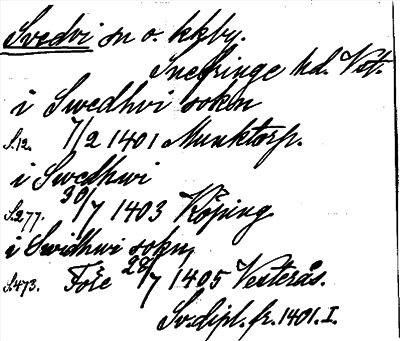 Svedvi sn o. kkby.
Snefringe hd. Vstm.
i Swedhvi sokn
S.12. 7/2 1401 Munktorp.
i Swedhwi
S.277. 30/7 1403 Köping.
i Swidhwi sokn,
S.473. Före 28/7 1405 Vesterås.
Sv.dipl. fr. 1401. I.